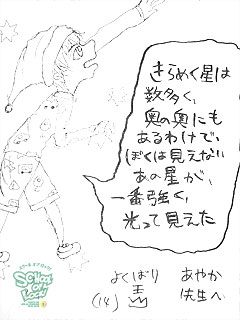 きらめく星は
数多く、
奥の奥にも
あるわけで、
ぼくは見えない
あの星が、
一番強く、
光って見えた
よくばり
王
(14)
あやか
先生へ
SCHOOL
OF
LOCK!